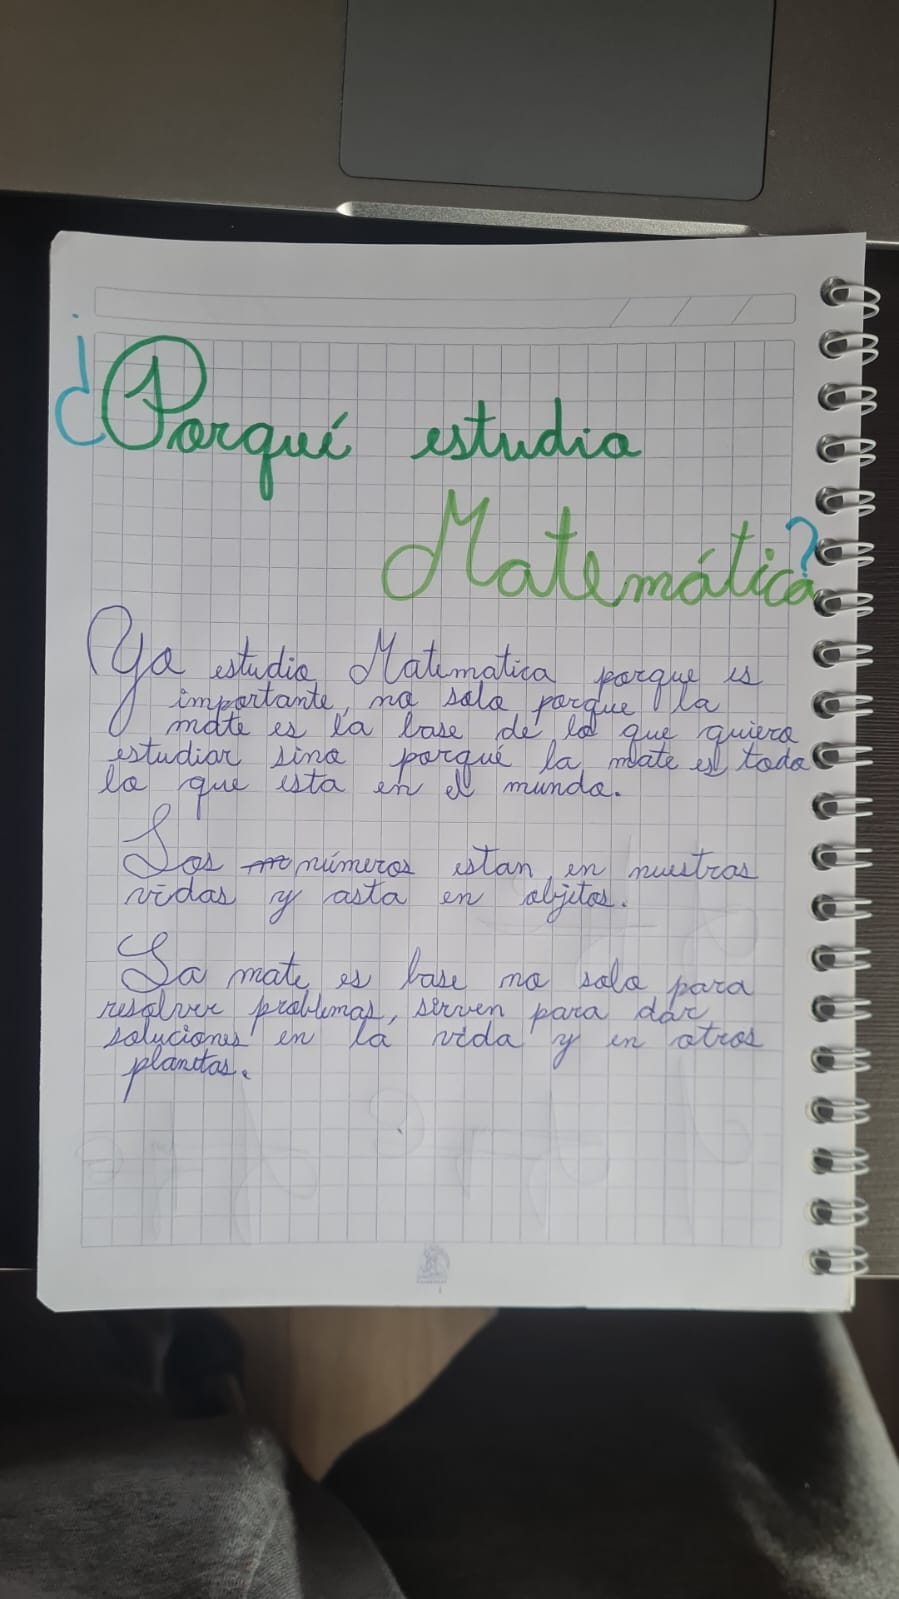 ¿Porqué estudio
Matemática?
Yo estudio Matematica porque es
importante, no solo porque la
mate es la base de lo que quiero
estudiar sino porqué la mate es todo
lo que esta en el mundo.
Los números estan en nuestras
vidas y asta en objetos.
La mate es base no solo para
resolver problemas, sirven para dar
soluciones en la vida y en otros
planetas.